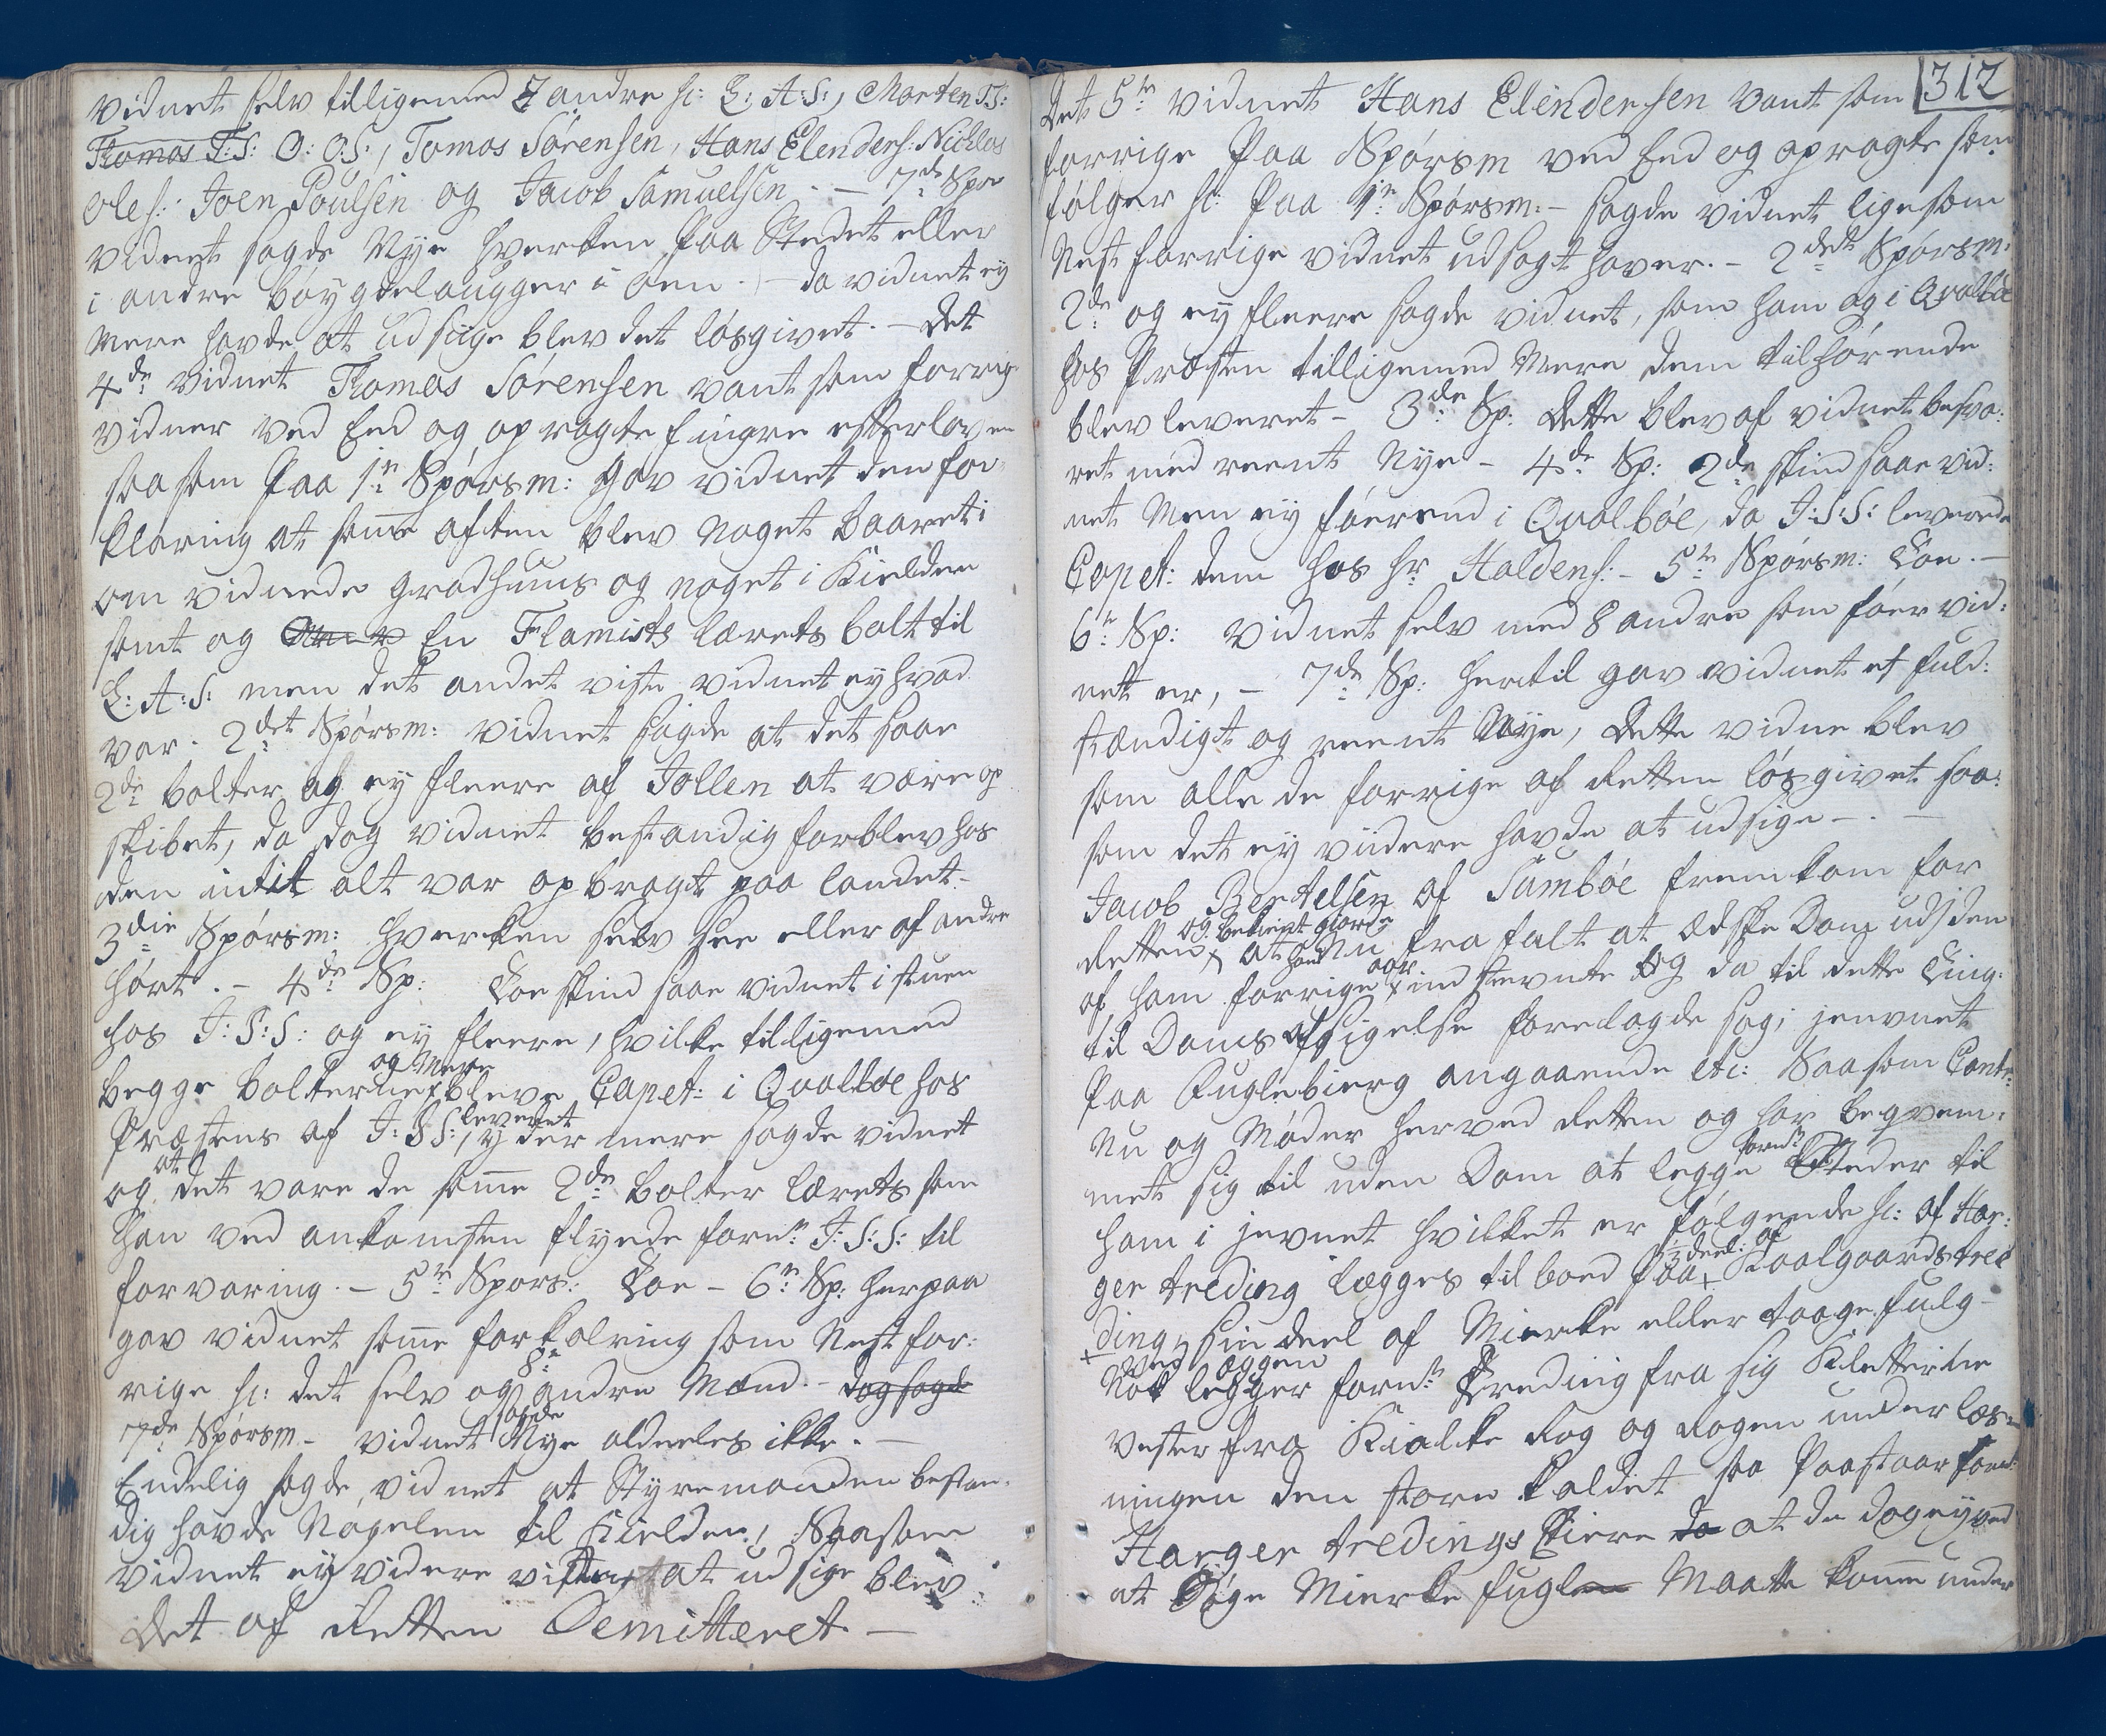 vidnet selv tilligemed 7 andre sc: L: A: S:, Morten T:S:
Thomas T:S: O: O:S:, Tomas Sörensen, Hans Elenders: Nicklas
Oles: Joen Poulsen og Jacob Samuelsen. – 7de Spør
vidnet sagde Nye hverken paa Stedet eller
i andre bøygdelaugger i Øen. – da vidnet ey
mere havde at udsiige blev det løsgivet. – Det
4de vidnet Thomas Sörensen vant som forrige
vidner ved Eed og opragte fingre efter loven
saasom paa 1te Spørsm: gav vidnet den for¬
klaring at samme aften blev noget baaret i
om vidnede gradhuus og noget i Kielden
samt og En Flamists lærets bolt til
L: A: S: men det andet viste vidnet ey hvad
var. 2det Spørsm: vidnet sagde at det saae
2de bolter og ey fleere af Jollen at være op
skibet, da dog vidnet bestandig forblev hos
den intil alt var opbragt paa landet –
3die Spørsm: hverken selv see eller af andre
hørt. – 4de Sp: Toe skind saae vidnet i stuen
hos J: S: S: og ey fleere, hvilke tilligemed
og mere
begge bolterne bleve Capet: i Qvalböe hos
leveret
Præstens af J: S S:, y der mere sagde vidnet
at
og det vare de samme 2de bolter lærets som
han ved ankomsten flyede fornte J: S: S: til
forvaring. – 5te Spørs: Toe – 6te Sp: herpaa
gav vidnet samme forkalring som Nest for:
8te
rige sc: det selv og andre Mænd. – dog sagde
sagde
7de Spørsm – vidnet Nye aldeeles ikke. –
Endelig sagde vidnet at Styremanden bestan¬
dig havde Nøgelen til Kielden, Saasom
vidnet ey videre viste at udsige blev
det af Retten Demitteret. –
312
Det 5te vidnet Hans Elendersen vant som
forrige paa Spørsm ved Eed og opragte som
følger sc: paa 1te Spørsm: – sagde vidnet ligesom
Nest forrige vidnet udsagt haver. – 2det Spørsm:
2de og ey fleere sagde vidnet, som ham og i Qvalböe
hos Præsten tilligemed mere dem tilhørende
blev leveret – 3de Sp: dette blev af vidnet besva:
ret med reent Nye – 4de Sp: 2de skind saae vid:
net men ey førend i Qvalböe, da J: S: S: leverede
Capet: dem hos hr Haldens: – 5te Spørsm: Toe. –
6te Sp: vidnet selv med 8 andre som føer vid:
net er, – 7de Sp: hertil gav vidnet et fuld:
stændigt og reent Nye, dette vidne blev
som alle de forrige af Retten løsgivet saa:
som det ey viidere havde at udsige –. –
Jacob Bertelsen af Sumböe fremkom for
og bekient giorde
Retten, at han Nu fra falt at Ædske Dom udj den
aar
af ham forrige ind stevnte og da til dette Ting
til Doms afsigelse forelagde sag; jevnet
paa Fuglebierg angaaende etc: Saasom Contr:
Nu og Møder herved Retten og har beqvem:
fornte
met sig til uden Dom at legge Steder til
ham i jevnet hvilket er følgende sc: af Har:
½ deel: af
ger treding lægges til boed paa Kaalgaardstree
ding sin deel af Mierke eller taage fulg –
ved eggen
Nok legger fornte Treding fra sig Kletterne
vester fra Kialke Rog og Rogen under læs¬
ningen den store kaldet saa paastaar fornte
Harger tredings Eiere da at de dog ey ved
at Søge Mierke fugle Maatte komme under